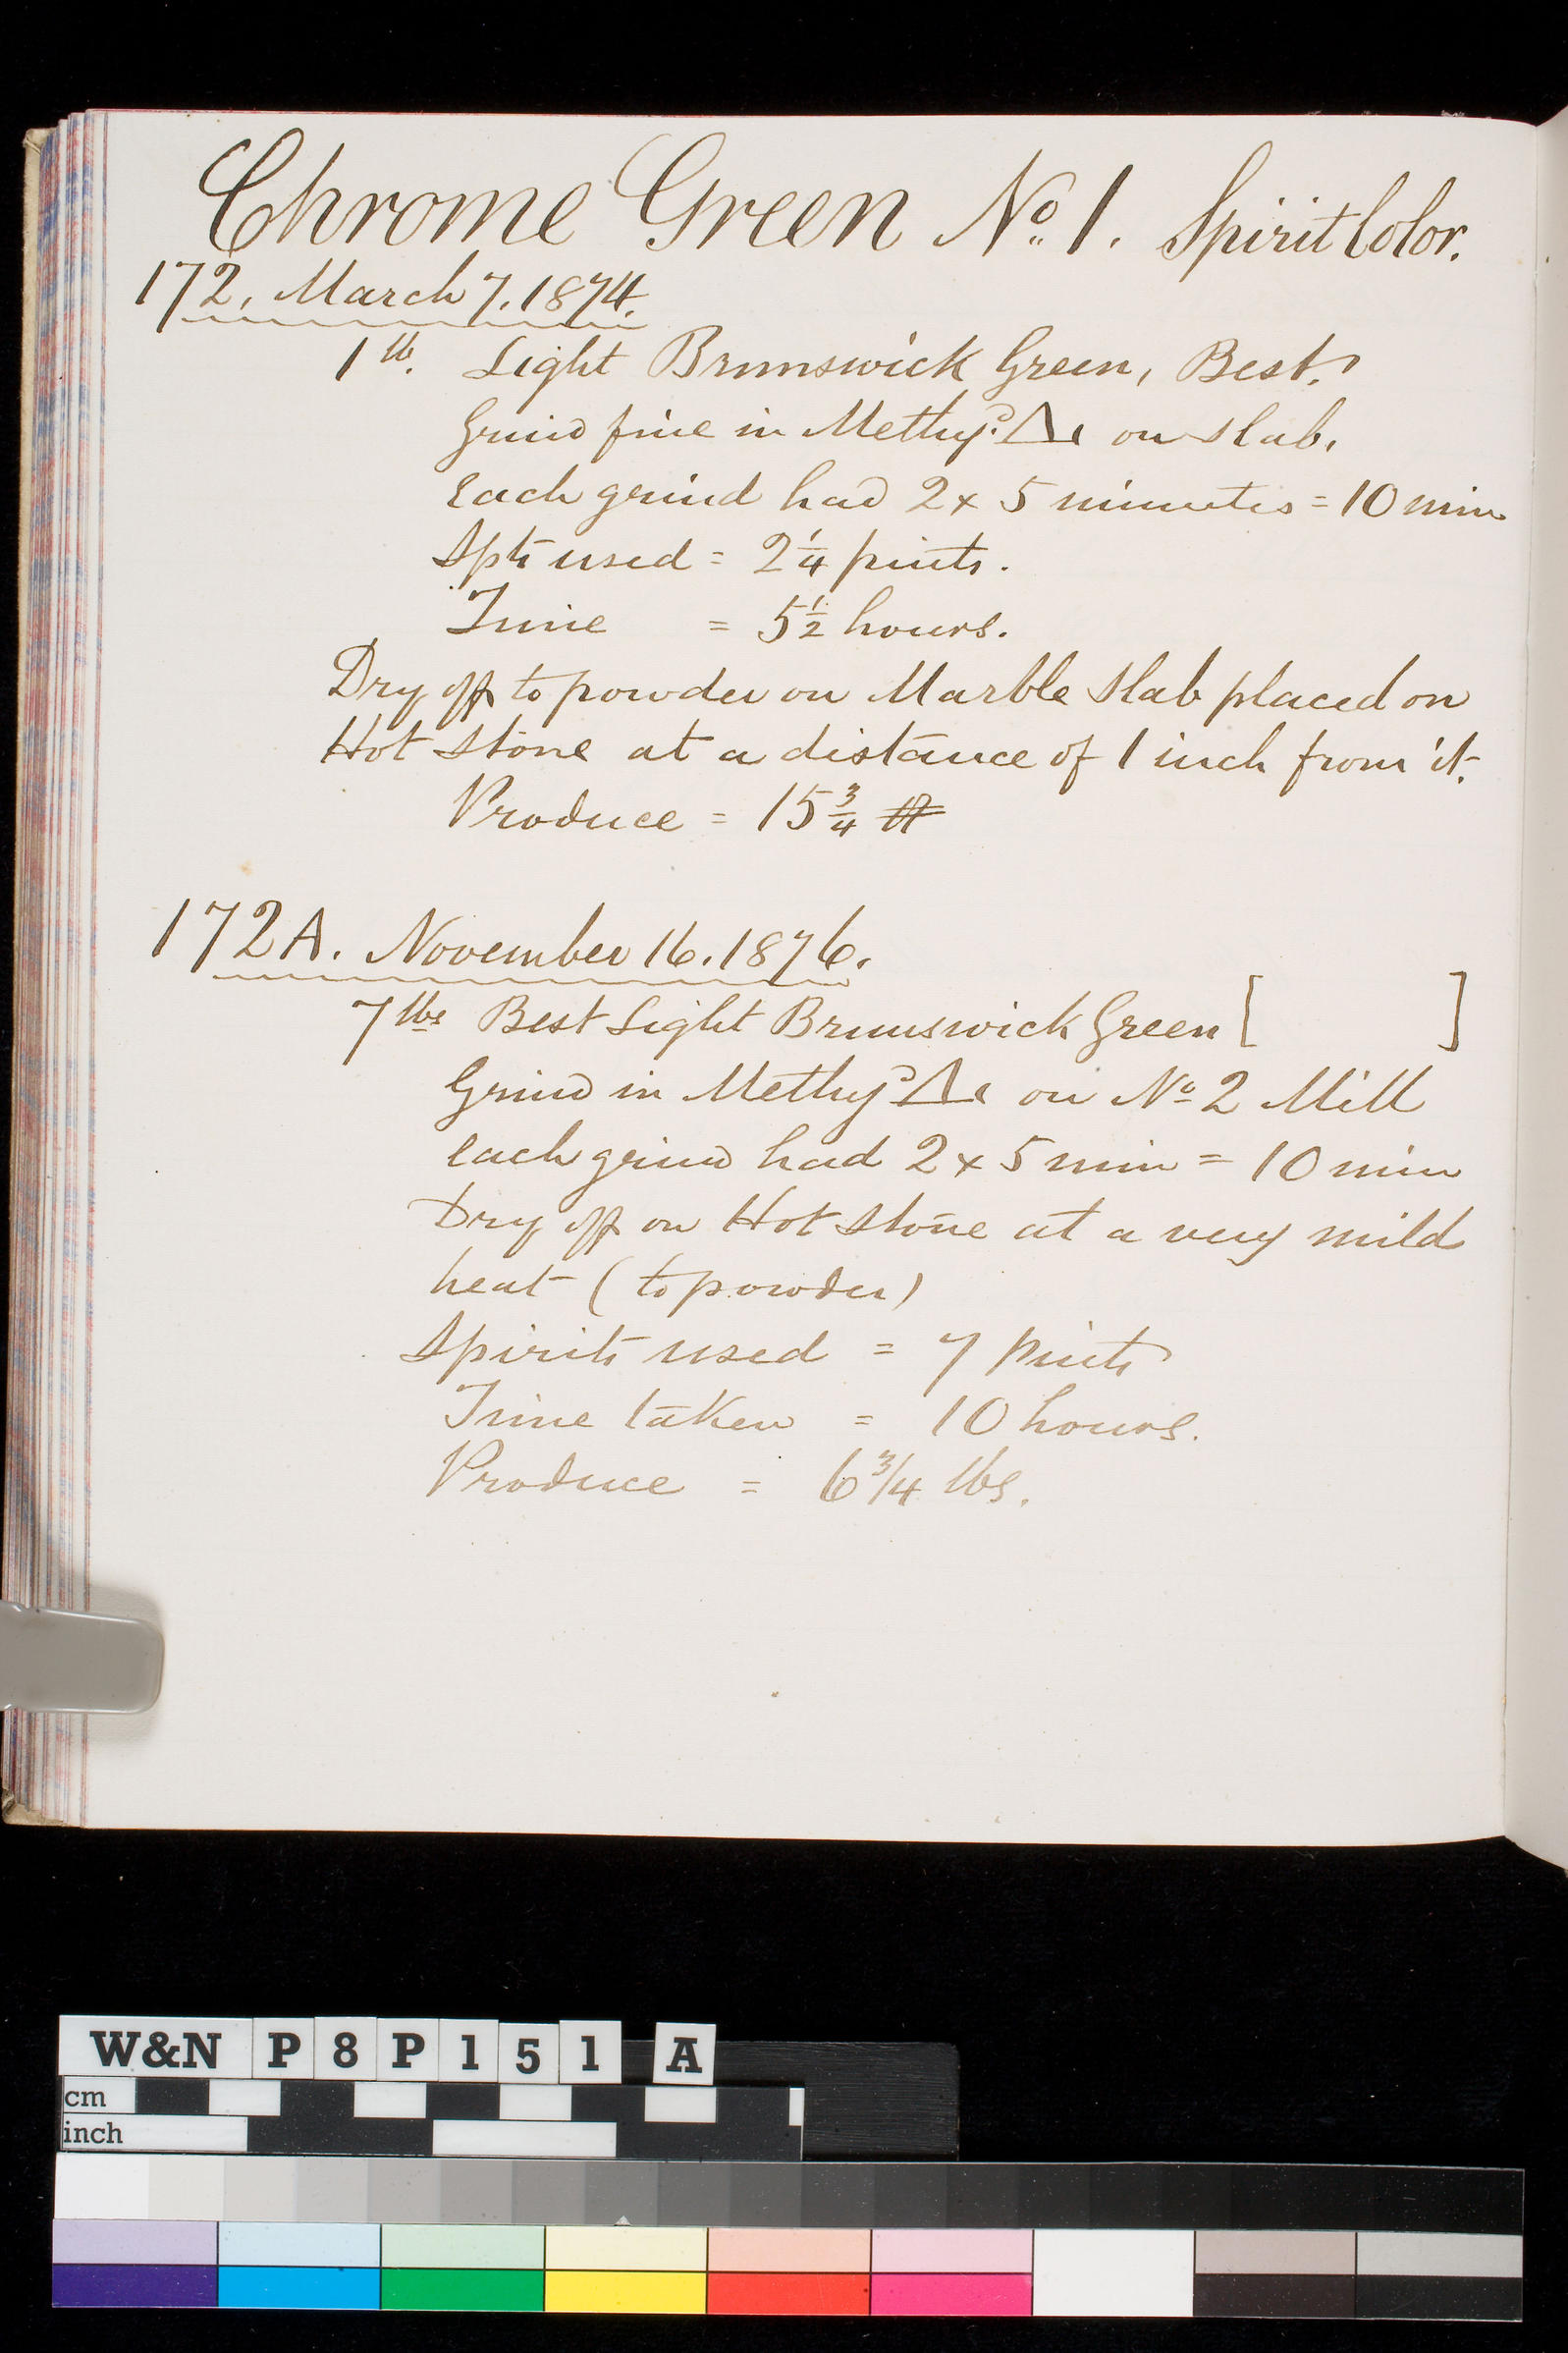 Chrome Green No. 1. Spirit Color.
172. March 7. 1874.
1 lb. Light Brunswick Green, Best.
Grind fine in Methyd. on slab.
Each grind had 2 x 5 minutes = 10 min
Spts used = 2 1/4 pints.
Time = 5 1/2 hours.
Dry off to powder on Marble Slab placed on
Hot Stone at a distance of 1 inch from it.
Produce = 15 3/4
172A. November 16. 1876.
7 lbs Best Light Brunswick Green [ ]
Grind in Methyd on No 2 Mill
each grind had 2 x 5 min = 10 min
Dry off on Hot Stone at a very mild
heat (to powder)
Spirits used = 7 pints
Time taken = 10 hours.
Produce = 6 3/4 lbs.
W&N P8P151 A
cm
inch